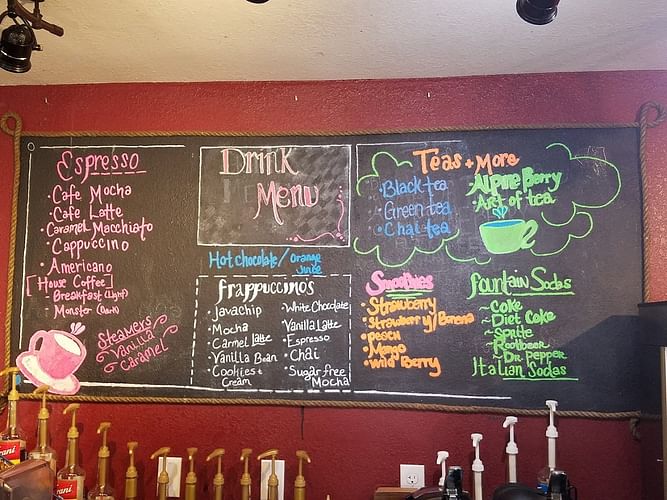 Espresso
• Cafe Mocha
• Cafe Latte
• Caramel Macchiato
• Cappuccino
• Americano
[House Coffee]
• Breakfast (Light)
• Monster (Dark)
Steamers
Vanilla
Caramel
Drink
Menu
Hot chocolate/ Orange
Juice
frappuccino's
• Javachip
• Mocha
• Carmel Latte
• Vanilla Bean
• Cookies +
Cream
• White Chocolate
Vanilla Latte
• Espresso
• Chai
• Sugar free
Mocha
Teas + More
• Black tea
• Green tea
• Chai tea
• Alpine Berry
• Art of tea
Smoothies
• Strawberry
• Strawberry/Banana
• peach
• Mango
• Wild Berry
fountain Sodas
~ Coke
~ Diet Coke
~ Sprite
~ Rootbeer
~ Dr. pepper
Italian Sodas
rani
rani